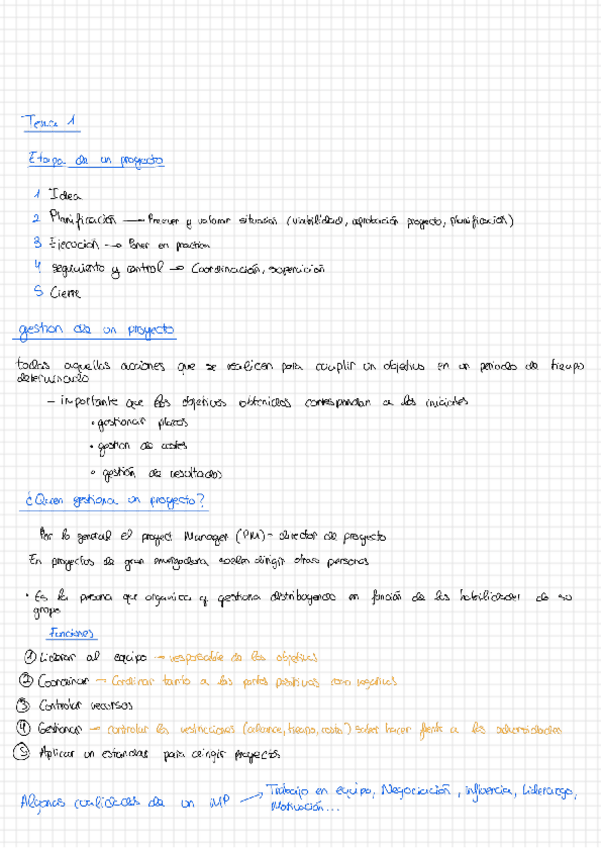 Tema 1
Etapa de un proyecto
1 Idea
2 Planificación → Preveer y valorar situación (viabilidad, aprobación proyecto, planificación)
3 Ejecución → Poner en practica
4 seguimiento y control → Coordinación, supervición
5 Cierre
gestion de un proyecto
todas aquellas acciones que se realicen para cumplir un objetivo en un periodo de tiempo
determinado
- importante que los objetivos obtenidos correspondan a los iniciales
• gestionar plazos
• gestion de costes
• gestión de resultados
¿Quien gestiona un proyecto?
Por lo general el proyect Manager (PM) - director de proyecto
En proyectos de gran envergadura suelen dirigir otras personas
• Es la persona que organiza y gestiona distribuyendo en función de las habilidades de su
grupo
Funciones
① Liderar al equipo → responsable de los objetivos
② Coordinar → Cordinar tanto a las partes positivas como negativas
③ Controlar recursos
④ Gestionar → controlar las restricciones (alcance, tiempo, coste) saber hacer frente a las adversidades
⑤ Aplicar un estandar para dirigir proyectos
Algunas cualidades de un MP → Trabajo en equipo, Negociación, influencia, Liderazgo,
Motivación...